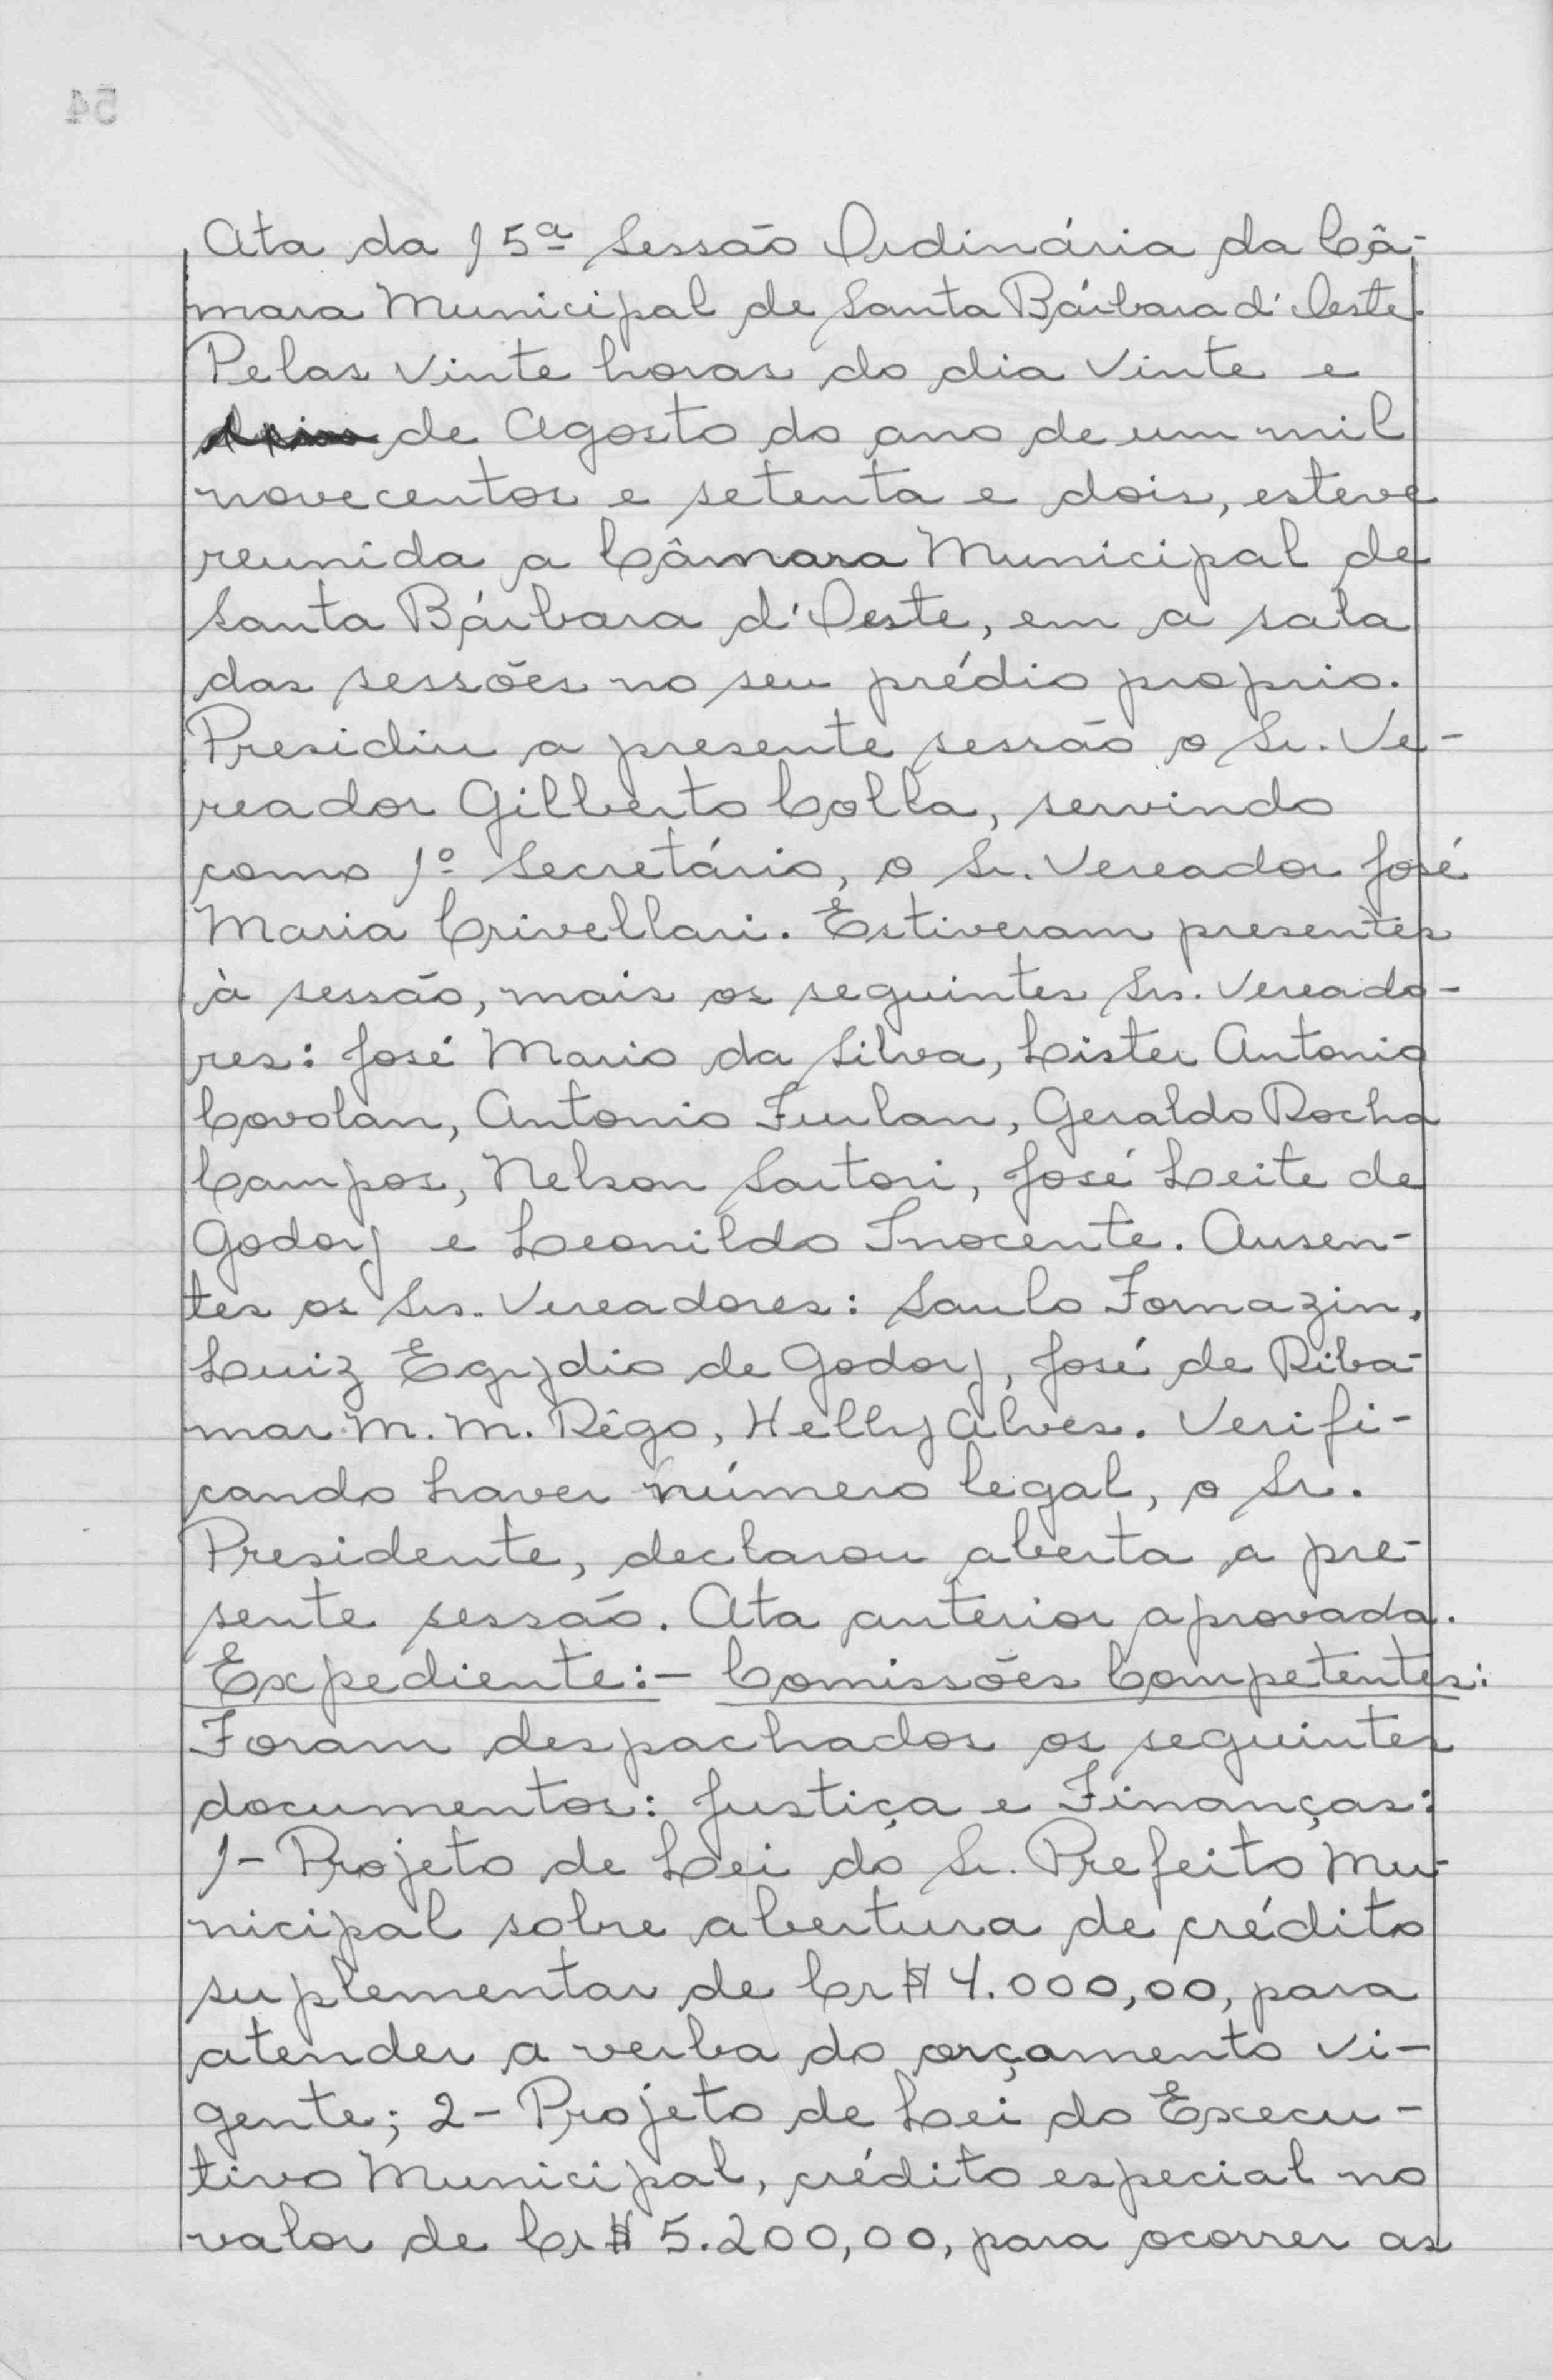 Ata da 15ª Sessão Ordinária da Câ-
mara Municipal de Santa Bárbara d'Oeste.
Pelas vinte horas do dia vinte e
de Agosto do ano de um mil
novecentos e setenta e dois, esteve
reunida a Câmara Municipal de
Santa Bárbara d'Oeste, em a sala
das sessões no seu prédio proprio.
Presidiu a presente sessão o Sr. Ve-
reador Gilberto Colla, servindo
como 1º Secretário, o Sr. Vereador José
Maria Crivellari. Estiveram presentes
à sessão, mais os seguintes Srs. Vereado-
res: José Mario da Silva, Lister Antonio
Covolan, Antonio Furlan, Geraldo Rocha
Campos, Nelson Sartori, José Leite de
Godoy e Leonildo Inocente. Ausen-
tes os Srs. Vereadores: Saulo Fornazin,
Luiz Egydio de Godoy, José de Riba-
mar M. M. Rêgo, Helly Alves. Verifi-
cando haver número legal, o Sr.
Presidente, declarou aberta a pre-
sente sessão. Ata anterior aprovada.
Expediente:- Comissões Competentes:
Foram despachados os seguintes
documentos: Justiça e Finanças:
1- Projeto de Lei do Sr. Prefeito Mu-
nicipal sobre abertura de crédito
suplementar de Cr$ 4.000,00, para
atender a verba do orçamento vi-
gente; 2- Projeto de Lei do Execu-
tivo Municipal, crédito especial no
valor de Cr$ 5.200,00, para ocorrer as